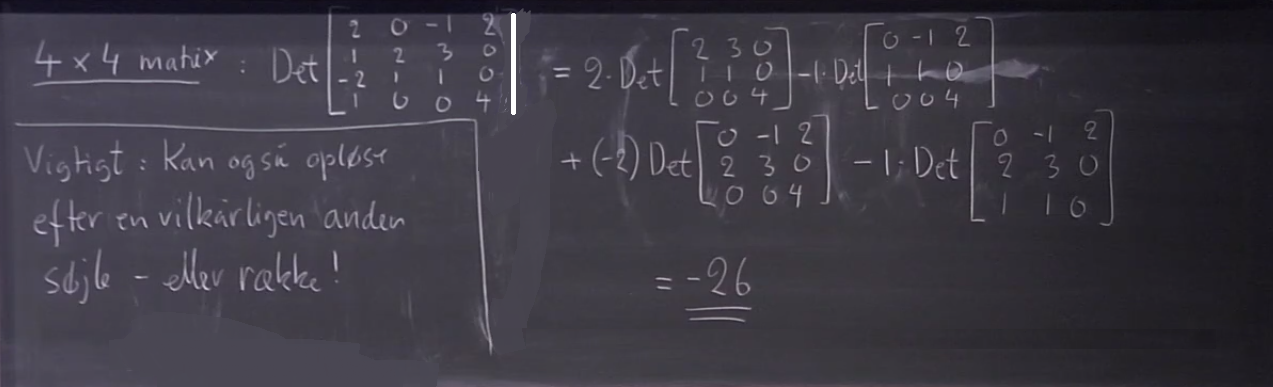 4 × 4 matrix : Det [2 0 -1 2; 1 2 3 0; -2 1 1 0; 1 0 0 4] = 2·Det [2 3 0; 1 1 0; 0 0 4] -1·Det [0 -1 2; 1 1 0; 0 0 4]
+ (-2) Det [0 -1 2; 2 3 0; 0 0 4] - 1· Det [0 -1 2; 2 3 0; 1 1 0]
= -26
Vigtigt : Kan også opløse
efter en vilkårligen anden
søjle - eller række!